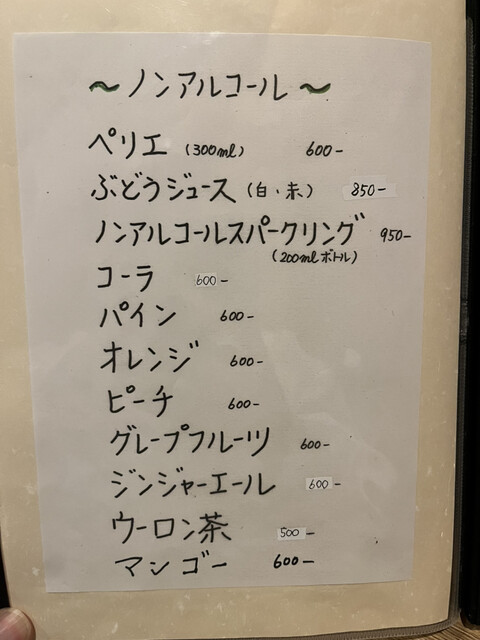 ～ノンアルコール～
ペリエ（300ml） 600-
ぶどうジュース（白・赤） 850-
ノンアルコールスパークリング 950-
（200mlボトル）
コーラ 600-
パイン 600-
オレンジ 600-
ピーチ 600-
グレープフルーツ 600-
ジンジャーエール 600-
ウーロン茶 500-
マンゴー 600-